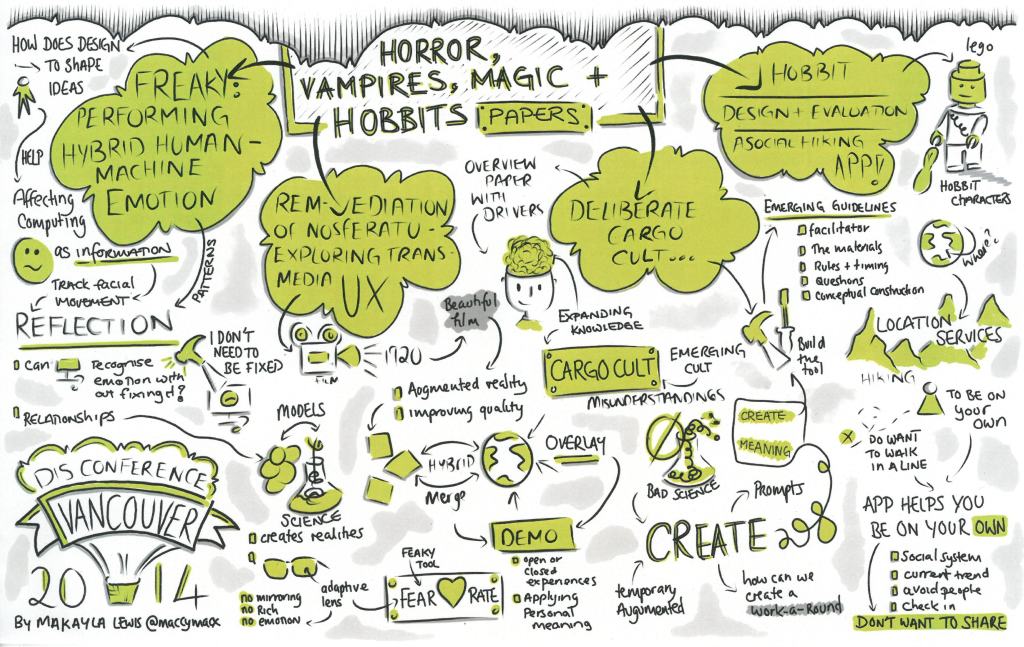 HORROR,
VAMPIRES, MAGIC +
HOBBITS PAPERS
HOW DOES DESIGN
TO SHAPE
IDEAS
HELP
Affecting
Computing
FREAKY:
PERFORMING
HYBRID HUMAN-
MACHINE
EMOTION
as information
TRACK facial
MOVEMENT
PATTERNS
REFLECTION
Can
Recognise
emotion with
out fixing it?
I DON'T
NEED TO
BE FIXED
RELATIONSHIPS
MODELS
SCIENCE
creates realities
no mirroring
no Rich
no emotion
adaptive
lens
FEAKY
TOOL
FEAR RATE
DIS CONFERENCE
VANCOUVER
2014
BY MAKAYLA LEWIS @maccymacx
REM-EDIATION
OF NOSFERATU -
EXPLORING TRANS-
MEDIA UX
FILM
1920
Beautiful
film
Augmented reality
improving quality
HYBRID
Merge
OVERLAY
DEMO
open or
closed
experiences
Applying
Personal
meaning
OVERVIEW
PAPER
WITH
DRIVERS
DELIBERATE
CARGO
CULT...
EXPANDING
KNOWLEDGE
CARGO CULT
EMERGING
CULT
MISUNDERSTANDINGS
Build
the
tool
BAD SCIENCE
CREATE
MEANING
Prompts
CREATE
temporary
Augmented
how can we
create a
work-a-round
HOBBIT
DESIGN + EVALUATION
ASOCIAL HIKING
APP!
lego
HOBBIT
CHARACTERS
EMERGING GUIDELINES
facilitator
The materials
Rules + timing
Questions
Conceptual construction
Where?
LOCATION
SERVICES
HIKING
TO BE ON
your
own
DO WANT
TO WALK
IN A LINE
APP HELPS YOU
BE ON YOUR OWN
Social system
current trend
avoid people
Check in
DON'T WANT TO SHARE